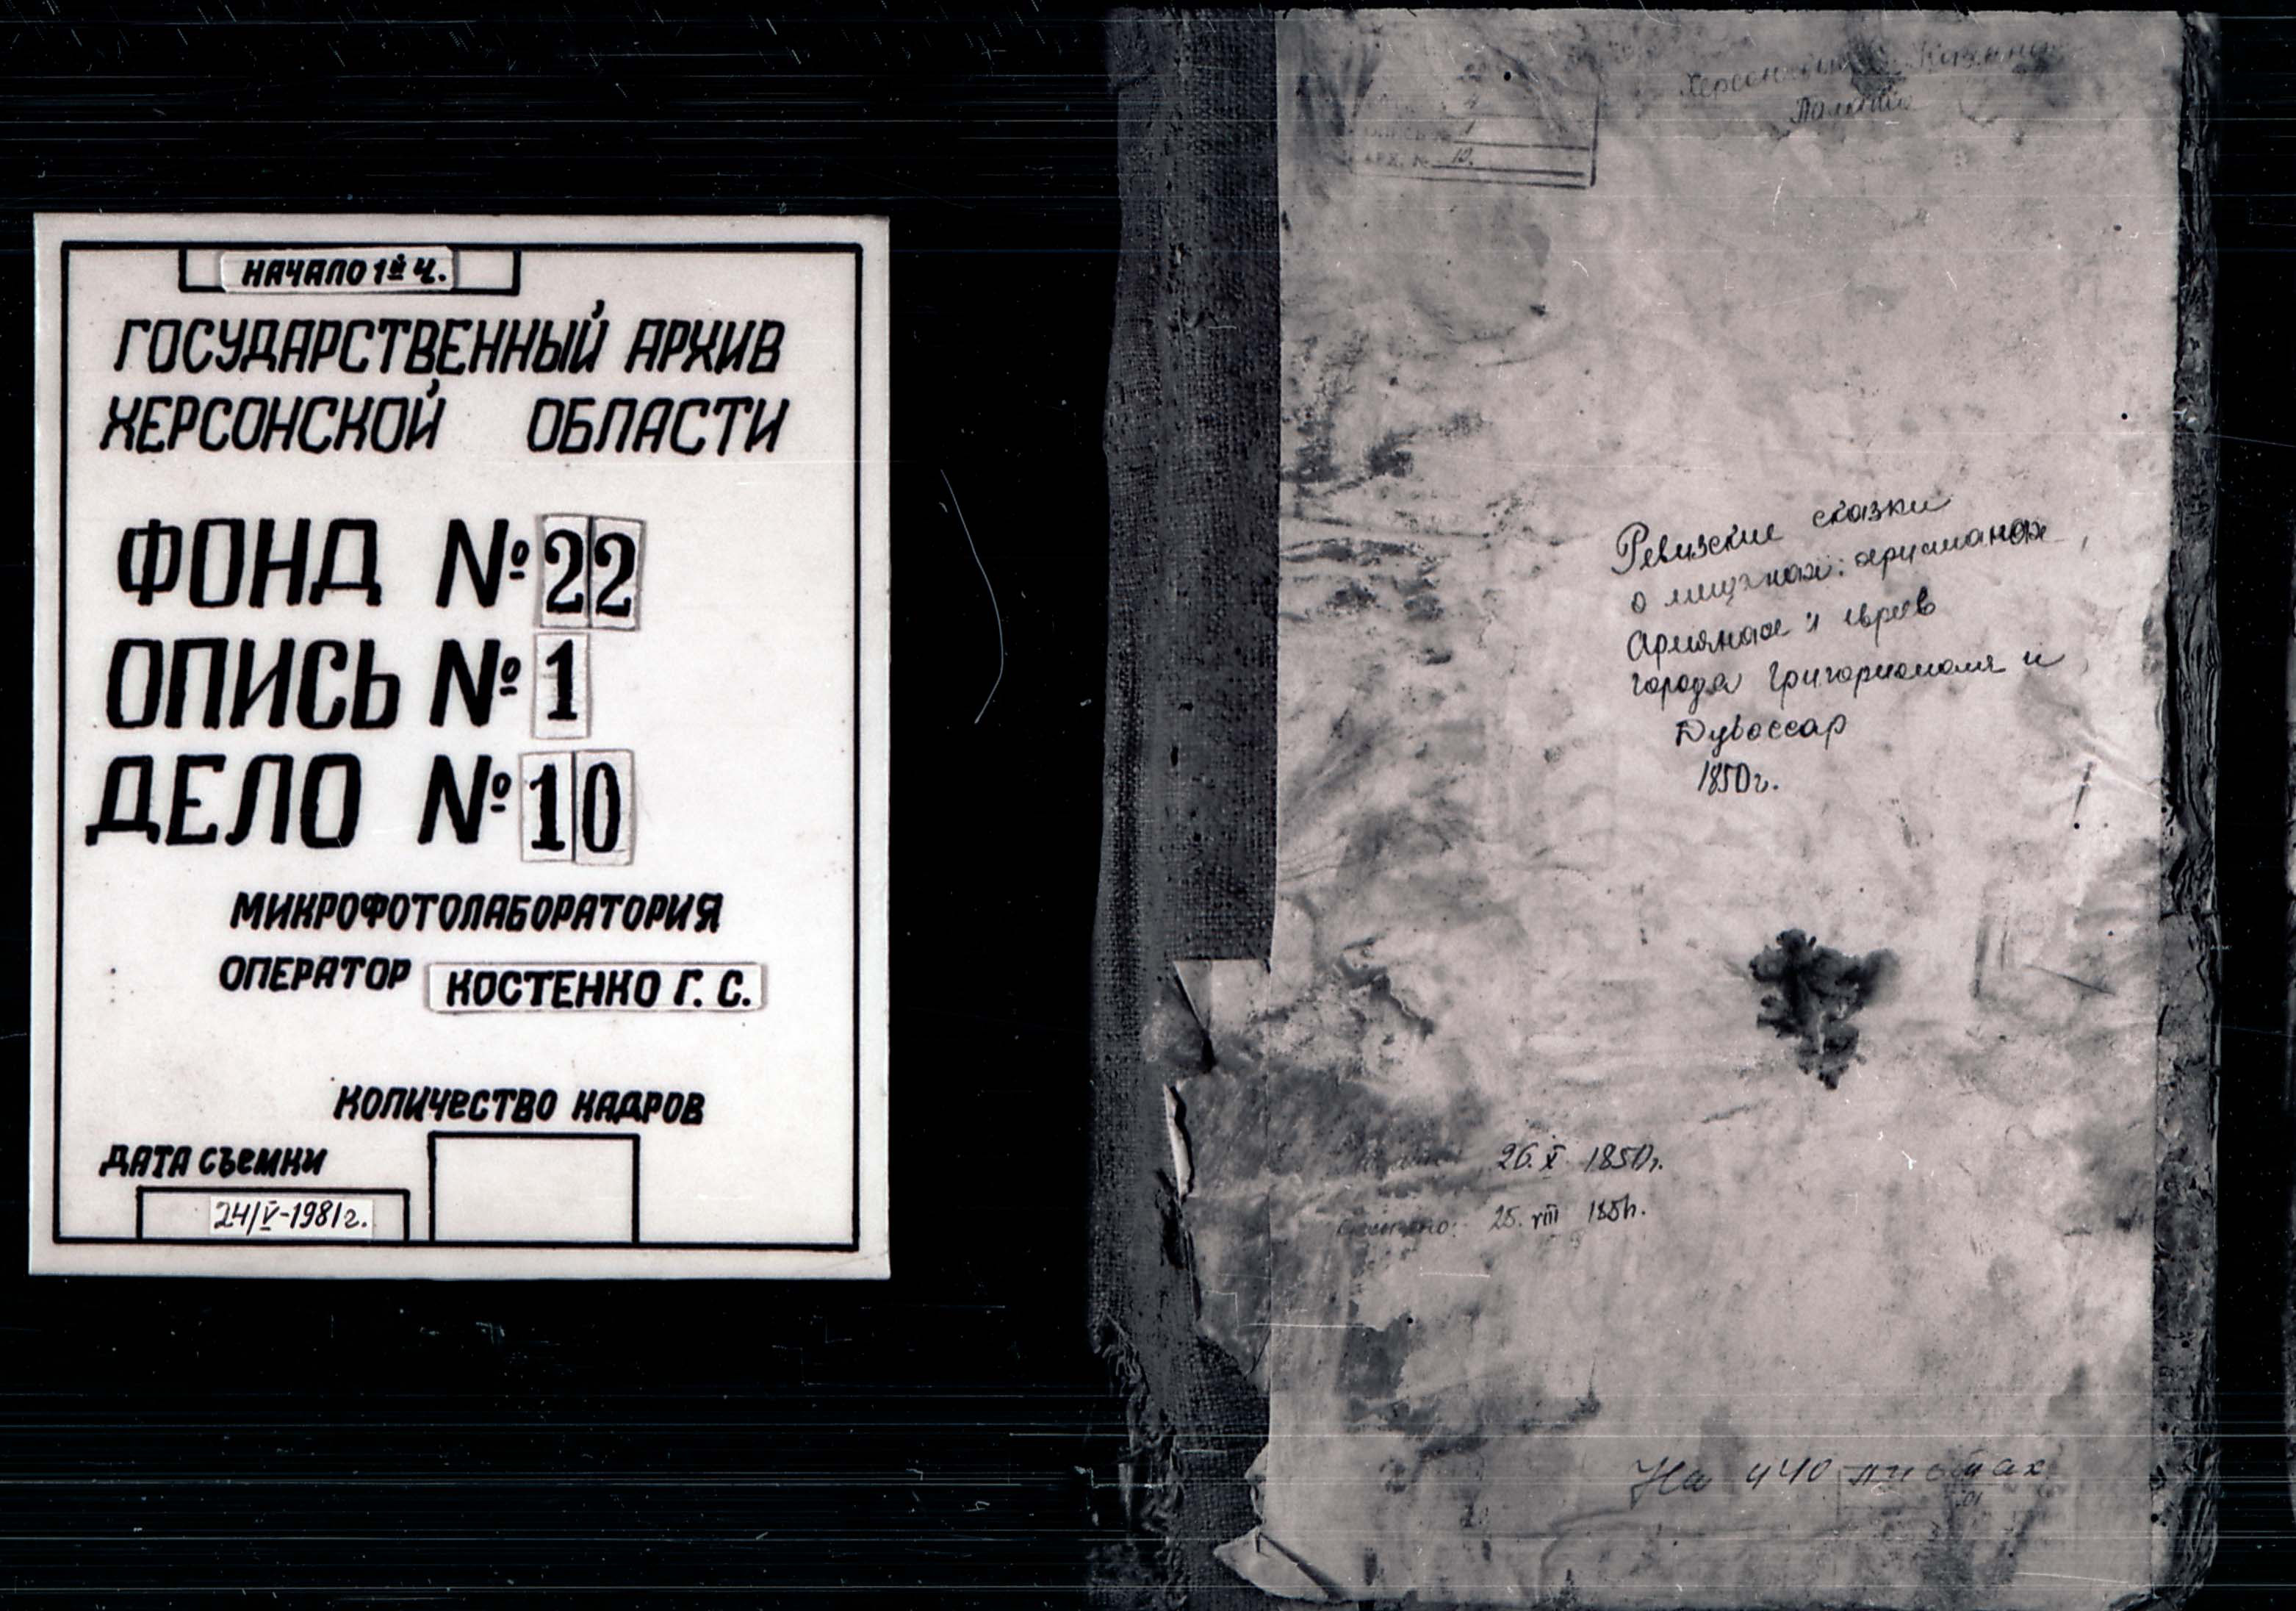 НАЧАЛО 1й Ч.
ГОСУДАРСТВЕННЫЙ АРХИВ
ХЕРСОНСКОЙ ОБЛАСТИ
ФОНД № 22
ОПИСЬ № 1
ДЕЛО № 10
МИКРОФОТОЛАБОРАТОРИЯ
ОПЕРАТОР КОСТЕНКО Г. С.
КОЛИЧЕСТВО КАДРОВ
ДАТА СЪЕМКИ
24/V-1981г.
Ревизские сказки
о мещанах: христианах,
Армянах и евреев
города Григориополя и
Дубоссар
1850г.
26. X 1850г.
25. VIII
На 440 листах